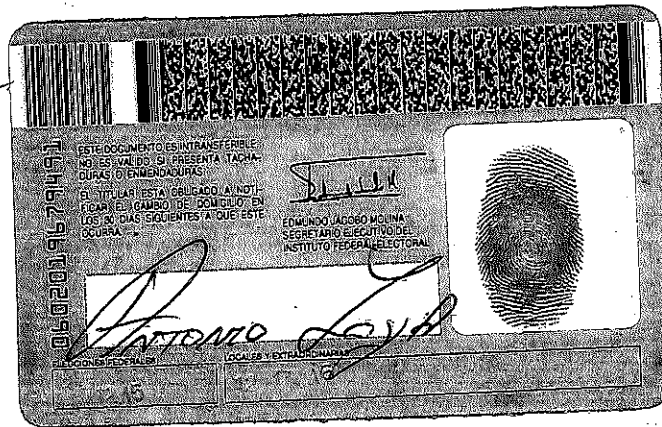 ESTE DOCUMENTO ES INTRANSFERIBLE
NO ES VALIDO SI PRESENTA TACHA-
DURAS O ENMENDADURAS.
EL TITULAR ESTA OBLIGADO A NOTI-
FICAR EL CAMBIO DE DOMICILIO EN
LOS 30 DIAS SIGUIENTES A QUE ESTE
OCURRA.
EDMUNDO JACOBO MOLINA
SECRETARIO EJECUTIVO DEL
INSTITUTO FEDERAL ELECTORAL
0602019679491
ANTONIO
ELECCIONES FEDERALES
LOCALES Y EXTRAORDINARIAS
15